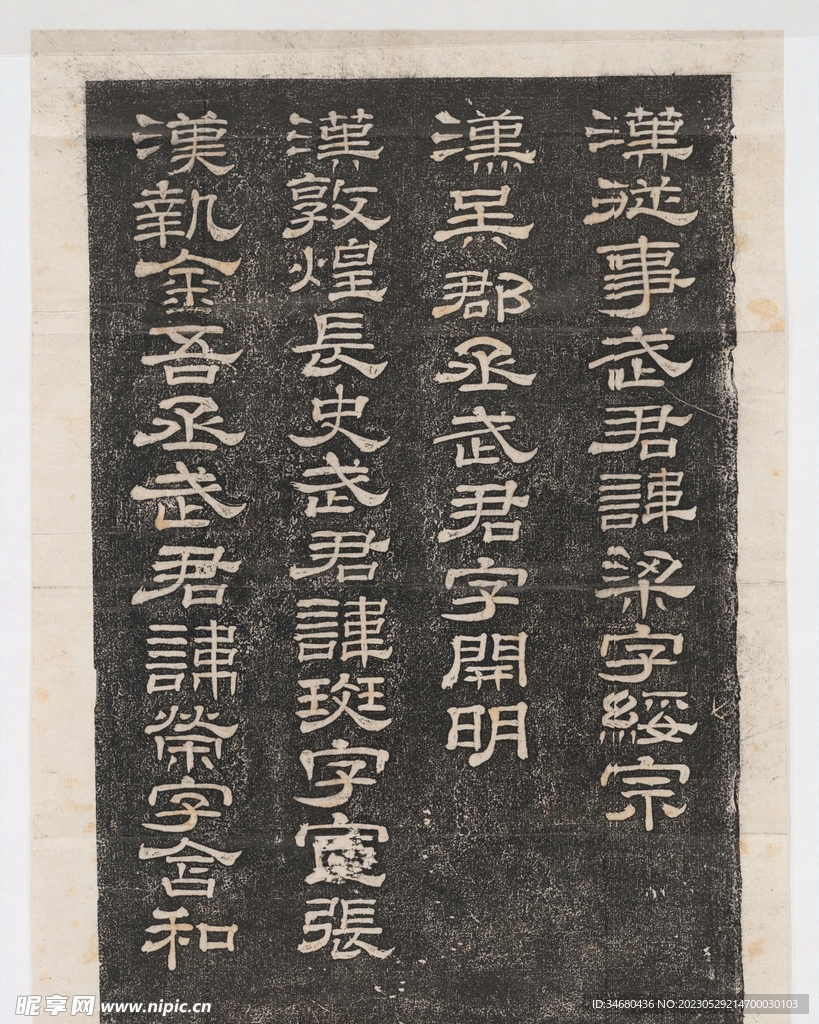 漢從事武君諱梁字綏宗
漢吳郡丞武君字開明
漢敦煌長史武君諱班字宣張
漢執金吾丞武君諱榮字含和
昵享网 www.nipic.cn
ID:34680436 NO:20230529214700030103